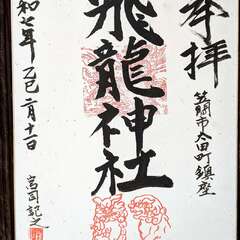 奉拝
笠間市太田町鎮座
飛龍神社
令和七年 乙巳 二月十一日
宮司記之